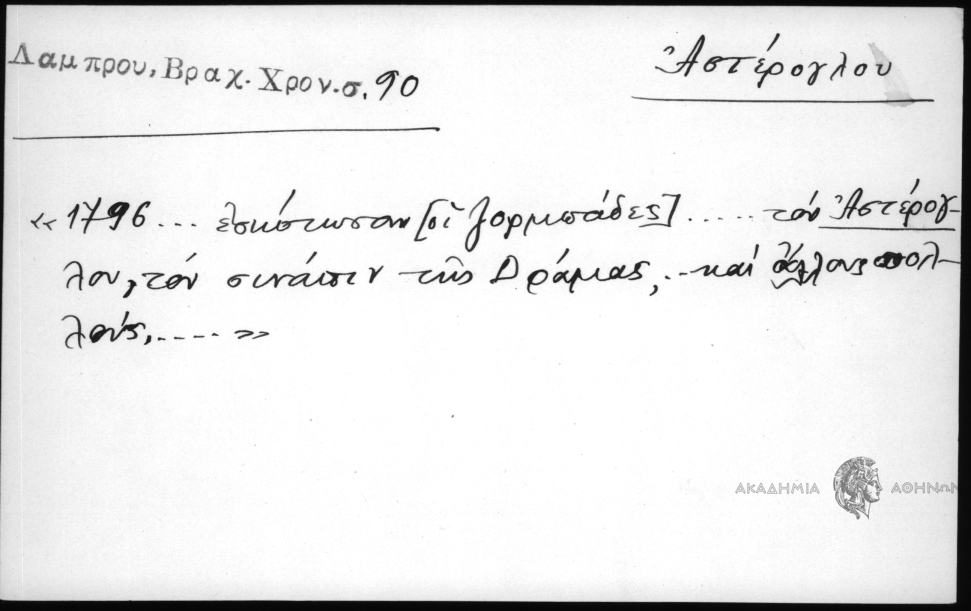 Λαμπρου, Βραχ. Χρον. σ. 90
Ἀστέρογλου
«1796 ... ἐσκότωσαν [οἱ ζορμπάδες] ..... τὸν Ἀστέρογ-
λου, τὸν σινάπιν τῆς Δράμας, .. καὶ ἄλλους πολ-
λούς, ..... »
ΑΚΑΔΗΜΙΑ ΑΘΗΝΩΝ